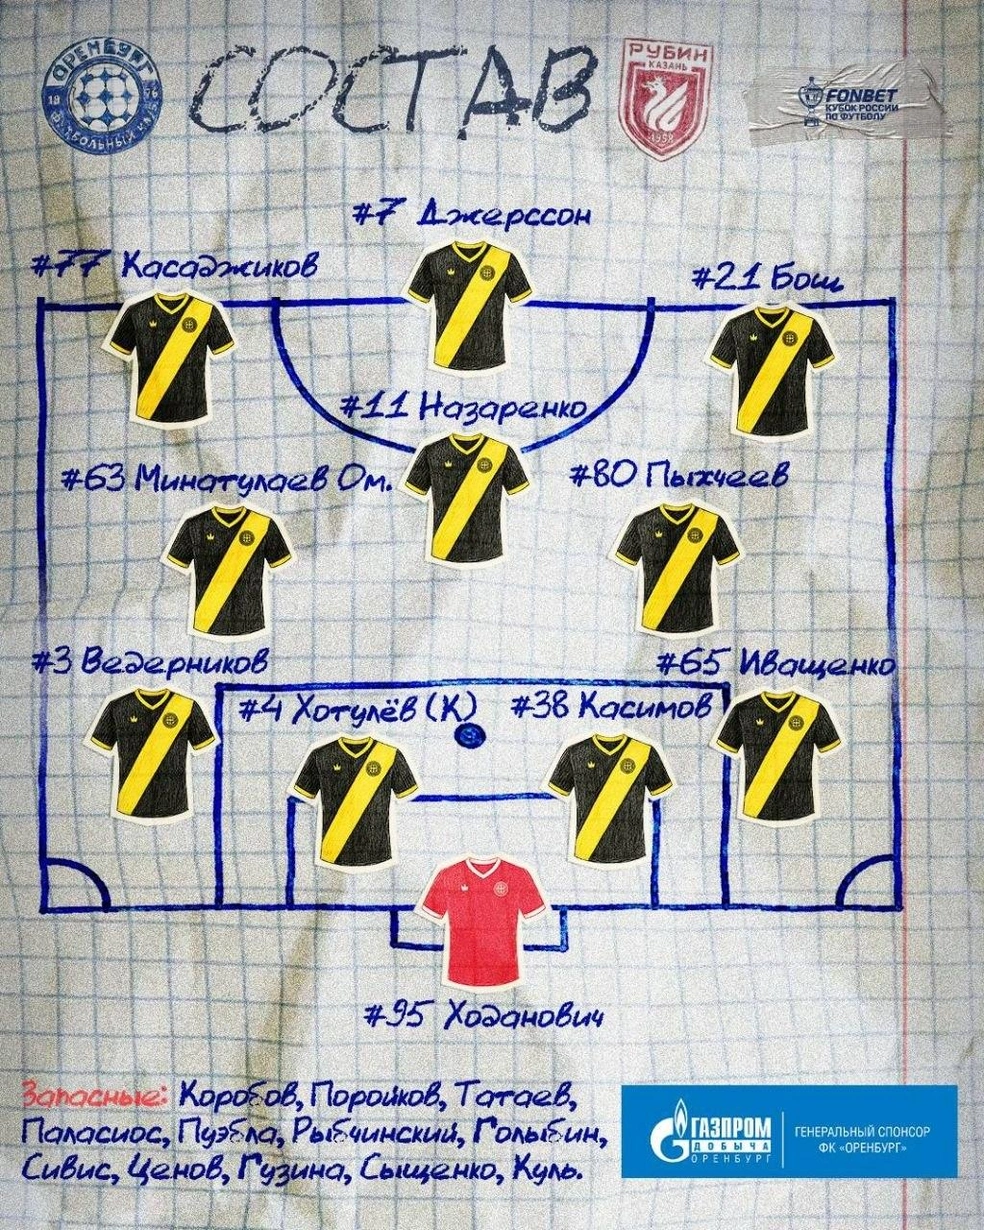 ОРЕНБУРГ
19 76
ФУТБОЛЬНЫЙ КЛУБ
СОСТАВ
РУБИН
КАЗАНЬ
1958
FONBET
КУБОК РОССИИ
ПО ФУТБОЛУ
#7 Джерссон
#77 Касаджиков
#21 Бош
#11 Назаренко
#63 Минатулаев Ом.
#80 Пыхчеев
#3 Ведерников
#65 Иващенко
#4 Хотулёв (К)
#38 Касимов
#95 Ходанович
Запасные: Коробов, Поройков, Татаев,
Паласиос, Пуэбла, Рыбчинский, Голыбин,
Сивис, Ценов, Гузина, Сыщенко, Куль.
ГАЗПРОМ
ДОБЫЧА
ОРЕНБУРГ
ГЕНЕРАЛЬНЫЙ СПОНСОР
ФК «ОРЕНБУРГ»